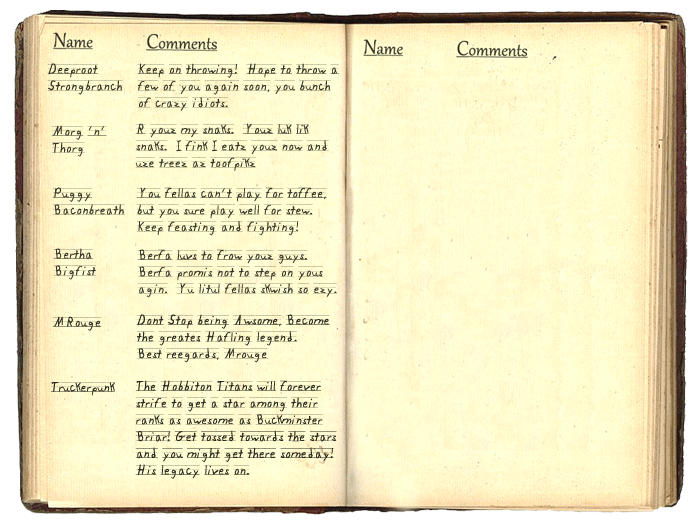 Name Comments
Deeproot Keep on throwing! Hope to throw a
Strongbranch few of you again soon, you bunch
of crazy idiots.
Morg 'n' R youz my snaks. Youz luk lik
Thorg snaks. I fink I eatz youz now and
uze treez az toofpikz
Puggy You fellas can't play for toffee,
Baconbreath but you sure play well for stew.
Keep feasting and fighting!
Bertha Berfa luvs to frow youz guys.
Bigfist Berfa promis not to step on yous
agin. Yu litul fellas skwish so ezy.
MRouge Dont Stop being Awsome, Become
the greates Hafling legend.
Best reegards, Mrouge
Truckerpunk The Hobbiton Titans will forever
strife to get a star among their
ranks as awesome as Buckminster
Briar! Get tossed towards the stars
and you might get there someday!
His legacy lives on.
Name Comments